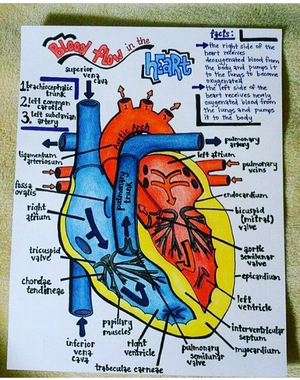 Blood Flow in the
heart
facts:
→ the right side of the
heart receives
deoxygenated blood from
the body and pumps it
to the lungs to become
oxygenated
→ the left side of the
heart receives newly
oxygenated blood from
the lungs and pumps
it to the body
superior
vena
cava
1. brachiocephalic
trunk
2. left common
carotid
3. left subclavian
artery
aortic arch
ligamentum
arteriosum
fossa
ovalis
right
atrium
tricuspid
valve
chordae
tendineae
inferior
vena
cava
papillary
muscles
right
ventricle
trabeculae carneae
pulmonary
trunk
pulmonary
artery
left atrium
pulmonary
veins
endocardium
bicuspid
(mitral)
valve
aortic
semilunar
valve
epicardium
left
ventricle
interventricular
septum
myocardium
pulmonary
semilunar
valve